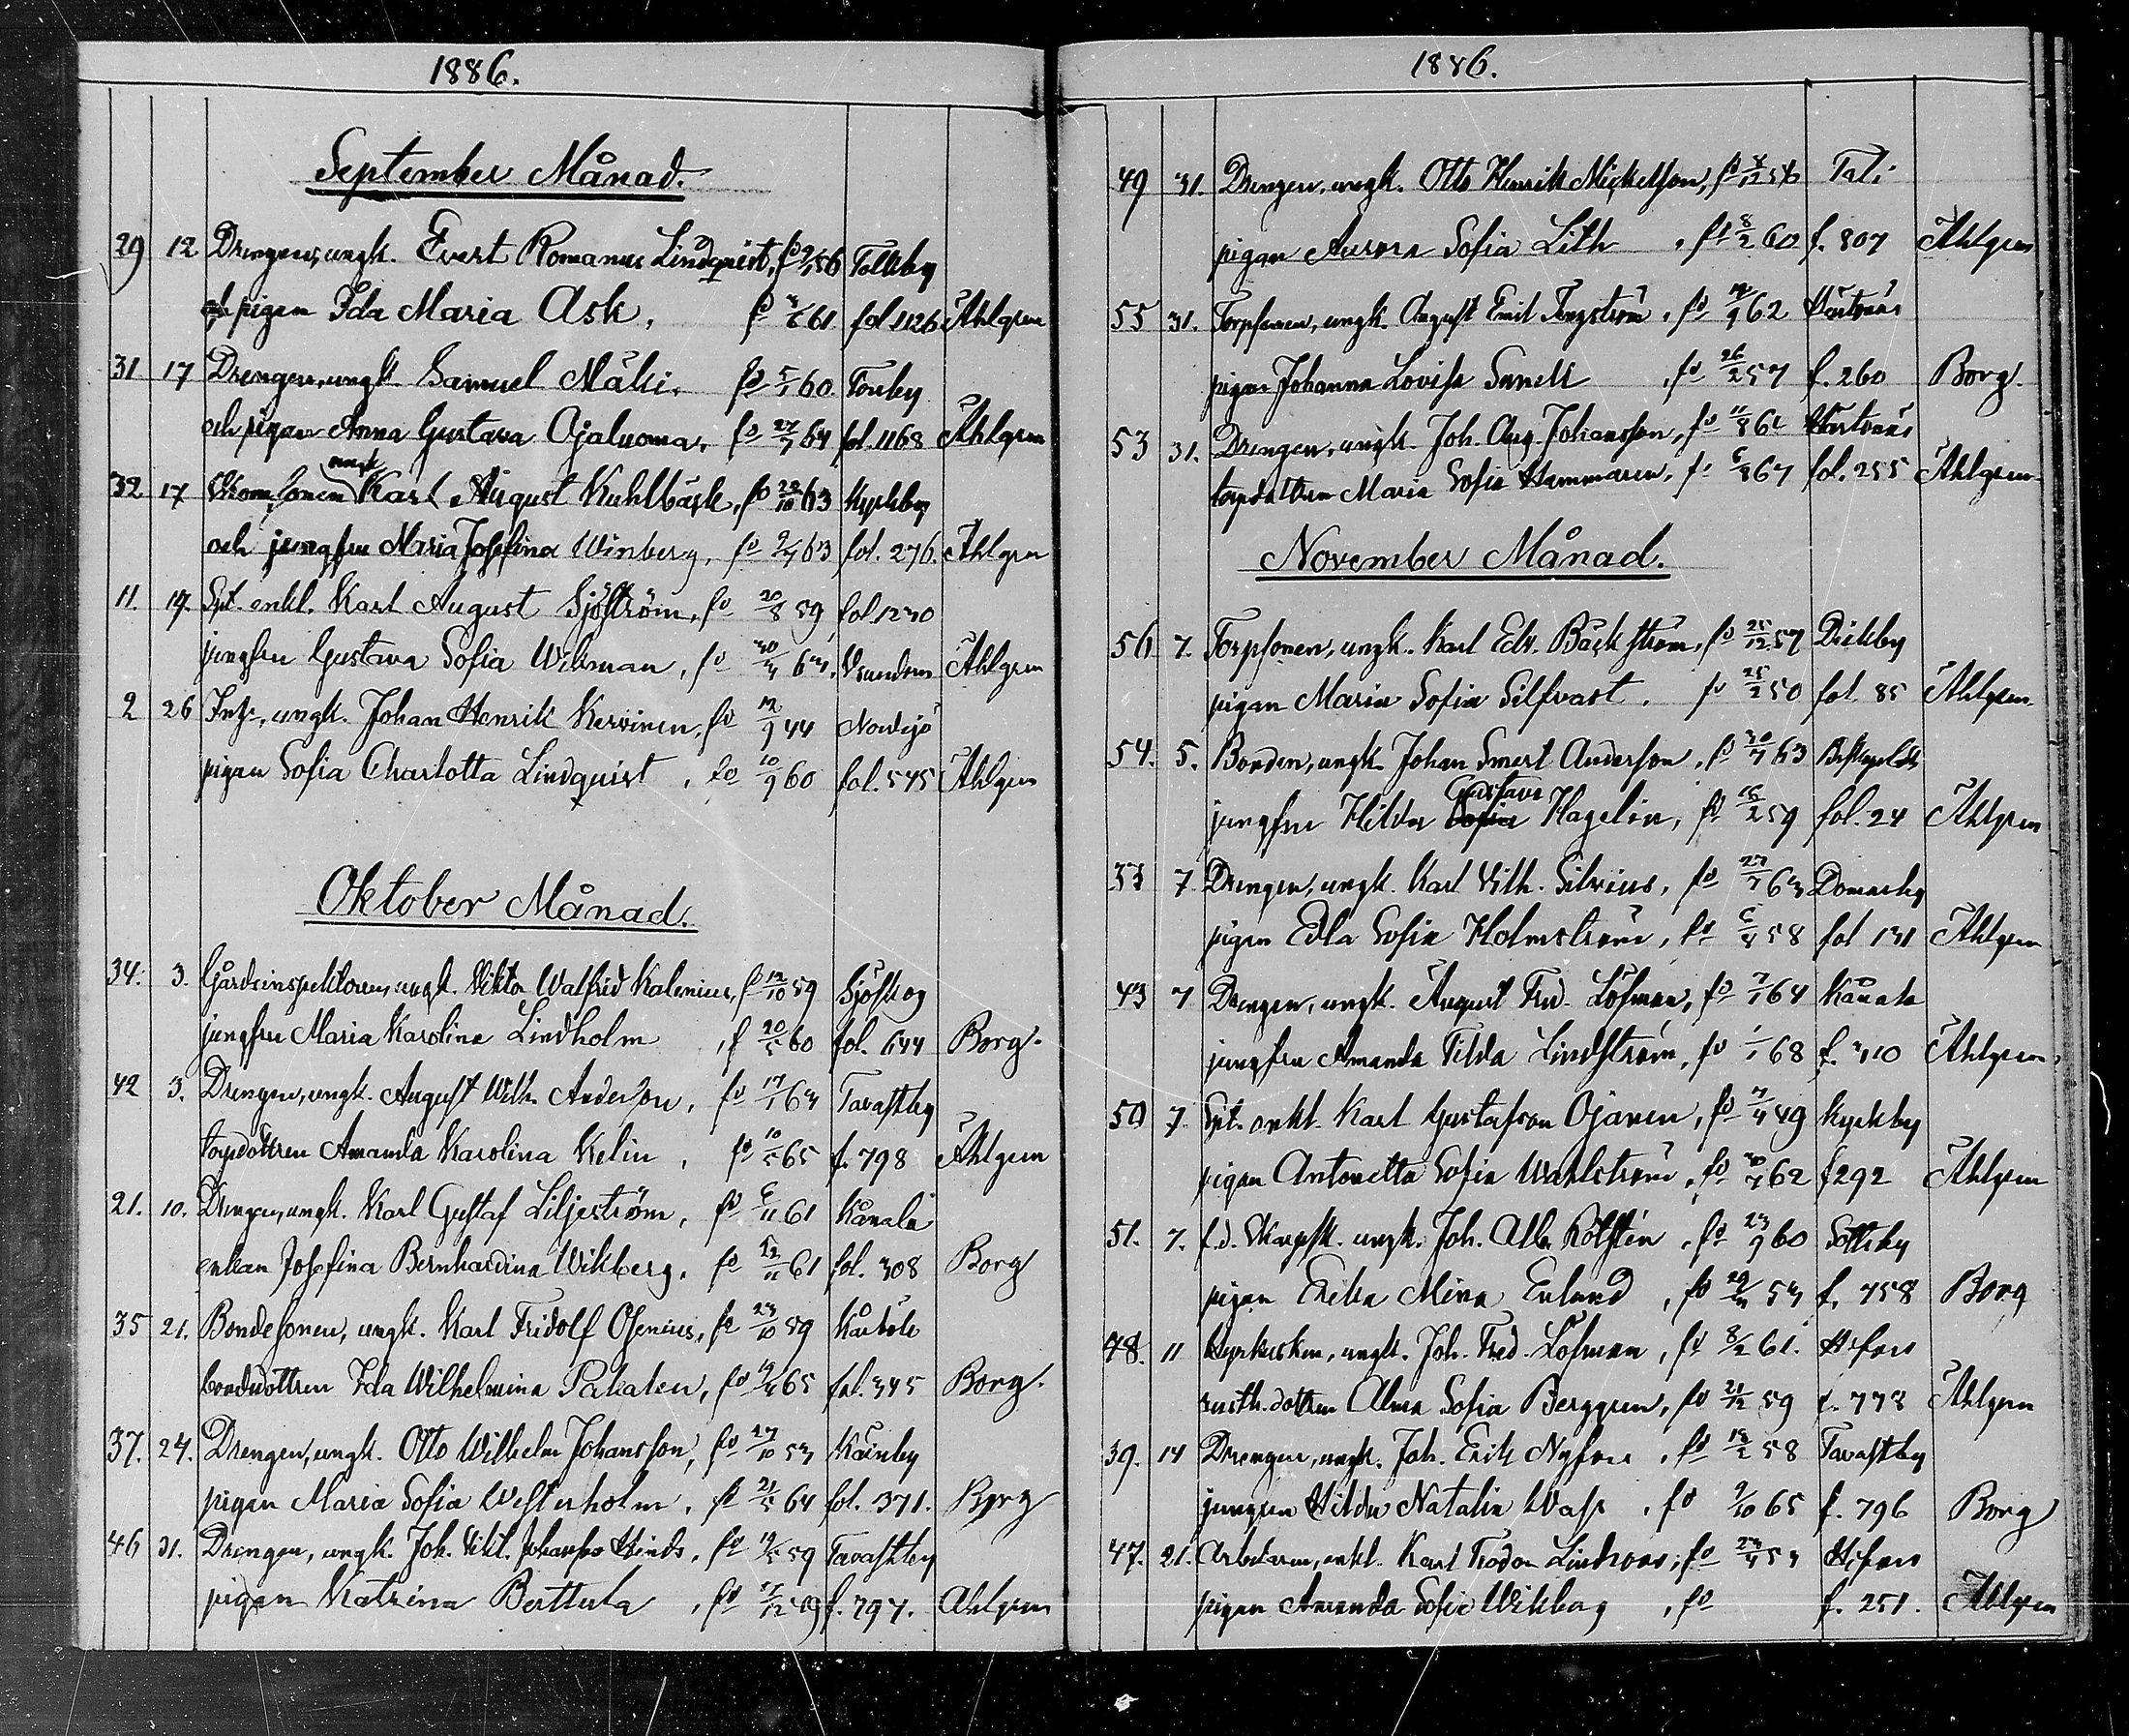 1886.
September Månad.
29 12 Drengen, ungk. Evert Romanus Lindqvist, fd 2/1 56 Tolkby
och pigan Ida Maria Ask, fd 61 fol 1126 Åhlgren
31 17 Drengen, ungk. Samuel Mäki, fd 5/1 60 Tomby
och pigan Anna Gustava Ojaluoma, fd 27/7 64 fol. 1168 Åhlgren
32 17 Skom.sonen ungk. Karl August Kuhlbäck, fd 28/10 63 Kyrkby
och jungfru Maria Josefina Winberg, fd 9/7 63 fol. 276. Åhlgren
11. 19. Spt. enkl. Karl August Sjöström, fd 20/8 59 fol. 1270
jungfru Gustava Sofia Wikman, fd Åhlgren
2 26 Inh., ungk. Johan Henrik Kervinen, fd 12/9 44 Nordsjö
pigan Sofia Charlotta Lindquist, fd 10/9 60 fol. 545 Åhlgren
Oktober Månad.
34. 3. Gårdsinspektoren, ungk. Viktor Walfrid Kalenius, f 12/10 59 Sjöskog
jungfru Maria Karolina Lindholm, f 20/5 60 fol. 644 Borg.
42 3. Drengen, ungk. August Wilh. Anderson, fd 17/1 63 Tavastby
torpdottren Amanda Karolina Kelin, fd 10/5 65 f. 798 Åhlgren
21. 10. Drengen, ungk. Karl Gustaf Liljeström, fd 6/11 61 Kånala
enkan Josefina Bernhardina Wikberg, fd 12/11 61 fol. 308 Borg
35 21. Bondesonen, ungk. Karl Fridolf Osenius, fd 23/10 59 Kårböle
bondedottren Ida Wilhelmina Pakalen, fd 65 fol. 345 Borg.
37. 24. Drengen, ungk. Otto Wilhelm Johansson, fd 27/10 53 Kårnby
pigan Maria Sofia Westerholm, fd 21/5 64 fol. 371. Borg
46 31. Drengen, ungk. Joh. Vikt. Johansson Hinds, fd 59 Tavastby
pigan Katrina Berttula, fd f. 797. Ahlgren
1886.
49 31. Drengen, ungk. Otto Henrik Mickelson, fd Tali
pigan Aurora Sofia Lith, fd 8/2 60 f. 807 Åhlgren
55 31. Torpsonen, ungk. August Emil Tengström, fd 62 Hertonäs
pigan Johanna Lovisa Snell, fd 26/2 57 f. 260 Borg.
53 31. Drengen, ungk. Joh. Aug. Johansson, fd 11/8 Hertonäs
torpdottren Maria Sofia Hammaren, f. 67 fol. 255 Åhlgren
November Månad.
56 7. Torpsonen, ungk. Karl Edv. Bäckström, fd 25/12 57 Dickby
pigan Maria Sofia Silfvast, fd 25/2 50 fol. 85 Åhlgren
54. 5. Bonden, ungk. Johan Anderson, fd 30/7 63
jungfru Hilda Gustava Hagelin, fd 16/2 59 fol. 24 Åhlgren
33 7 Drengen, ungk. Karl Vilh. Silvius, fd 27/7 63 Domarby
pigan Edla Sofia Holmström, fd 58 fol 131 Åhlgren
43 7 Drengen, ungk. August Fred. Löfman, fd 7/1 64 Kånala
jungfru Amanda Tilda Lindström, fd 1/1 68 f. 310 Åhlgren
50 7. Spt. enkl. Karl Gustafson Ojanen, fd 7/4 49 Kyrkby
pigan Antonetta Sofia Wahlström, fd 62 f 292 Åhlgren
51. 7. f.d. ungk. Joh. Alb. Rolsten, fd 23/9 60 Sottsby
pigan Erika Mina Enlund, fd 53 f. 758 Borg
48. 11 Kyrkusken, ungk. Joh. Fred. Löfman, fd 8/2 61. H:fors
rusth.dottren Alma Sofia Berggren, fd 21/12 59 f. 778 Åhlgren
39. 14 Drengen, ungk. Joh. Erik Nyfors, fd 18/2 58 Tavastby
jungfru Hilda Natalia Wass, fd 9/10 65 f. 796 Borg
47. 21. Arbetaren, enkl. Karl Teodor Lindroos, fd H:fors
pigan Amanda Sofia Wikberg, fd f. 251. Åhlgren